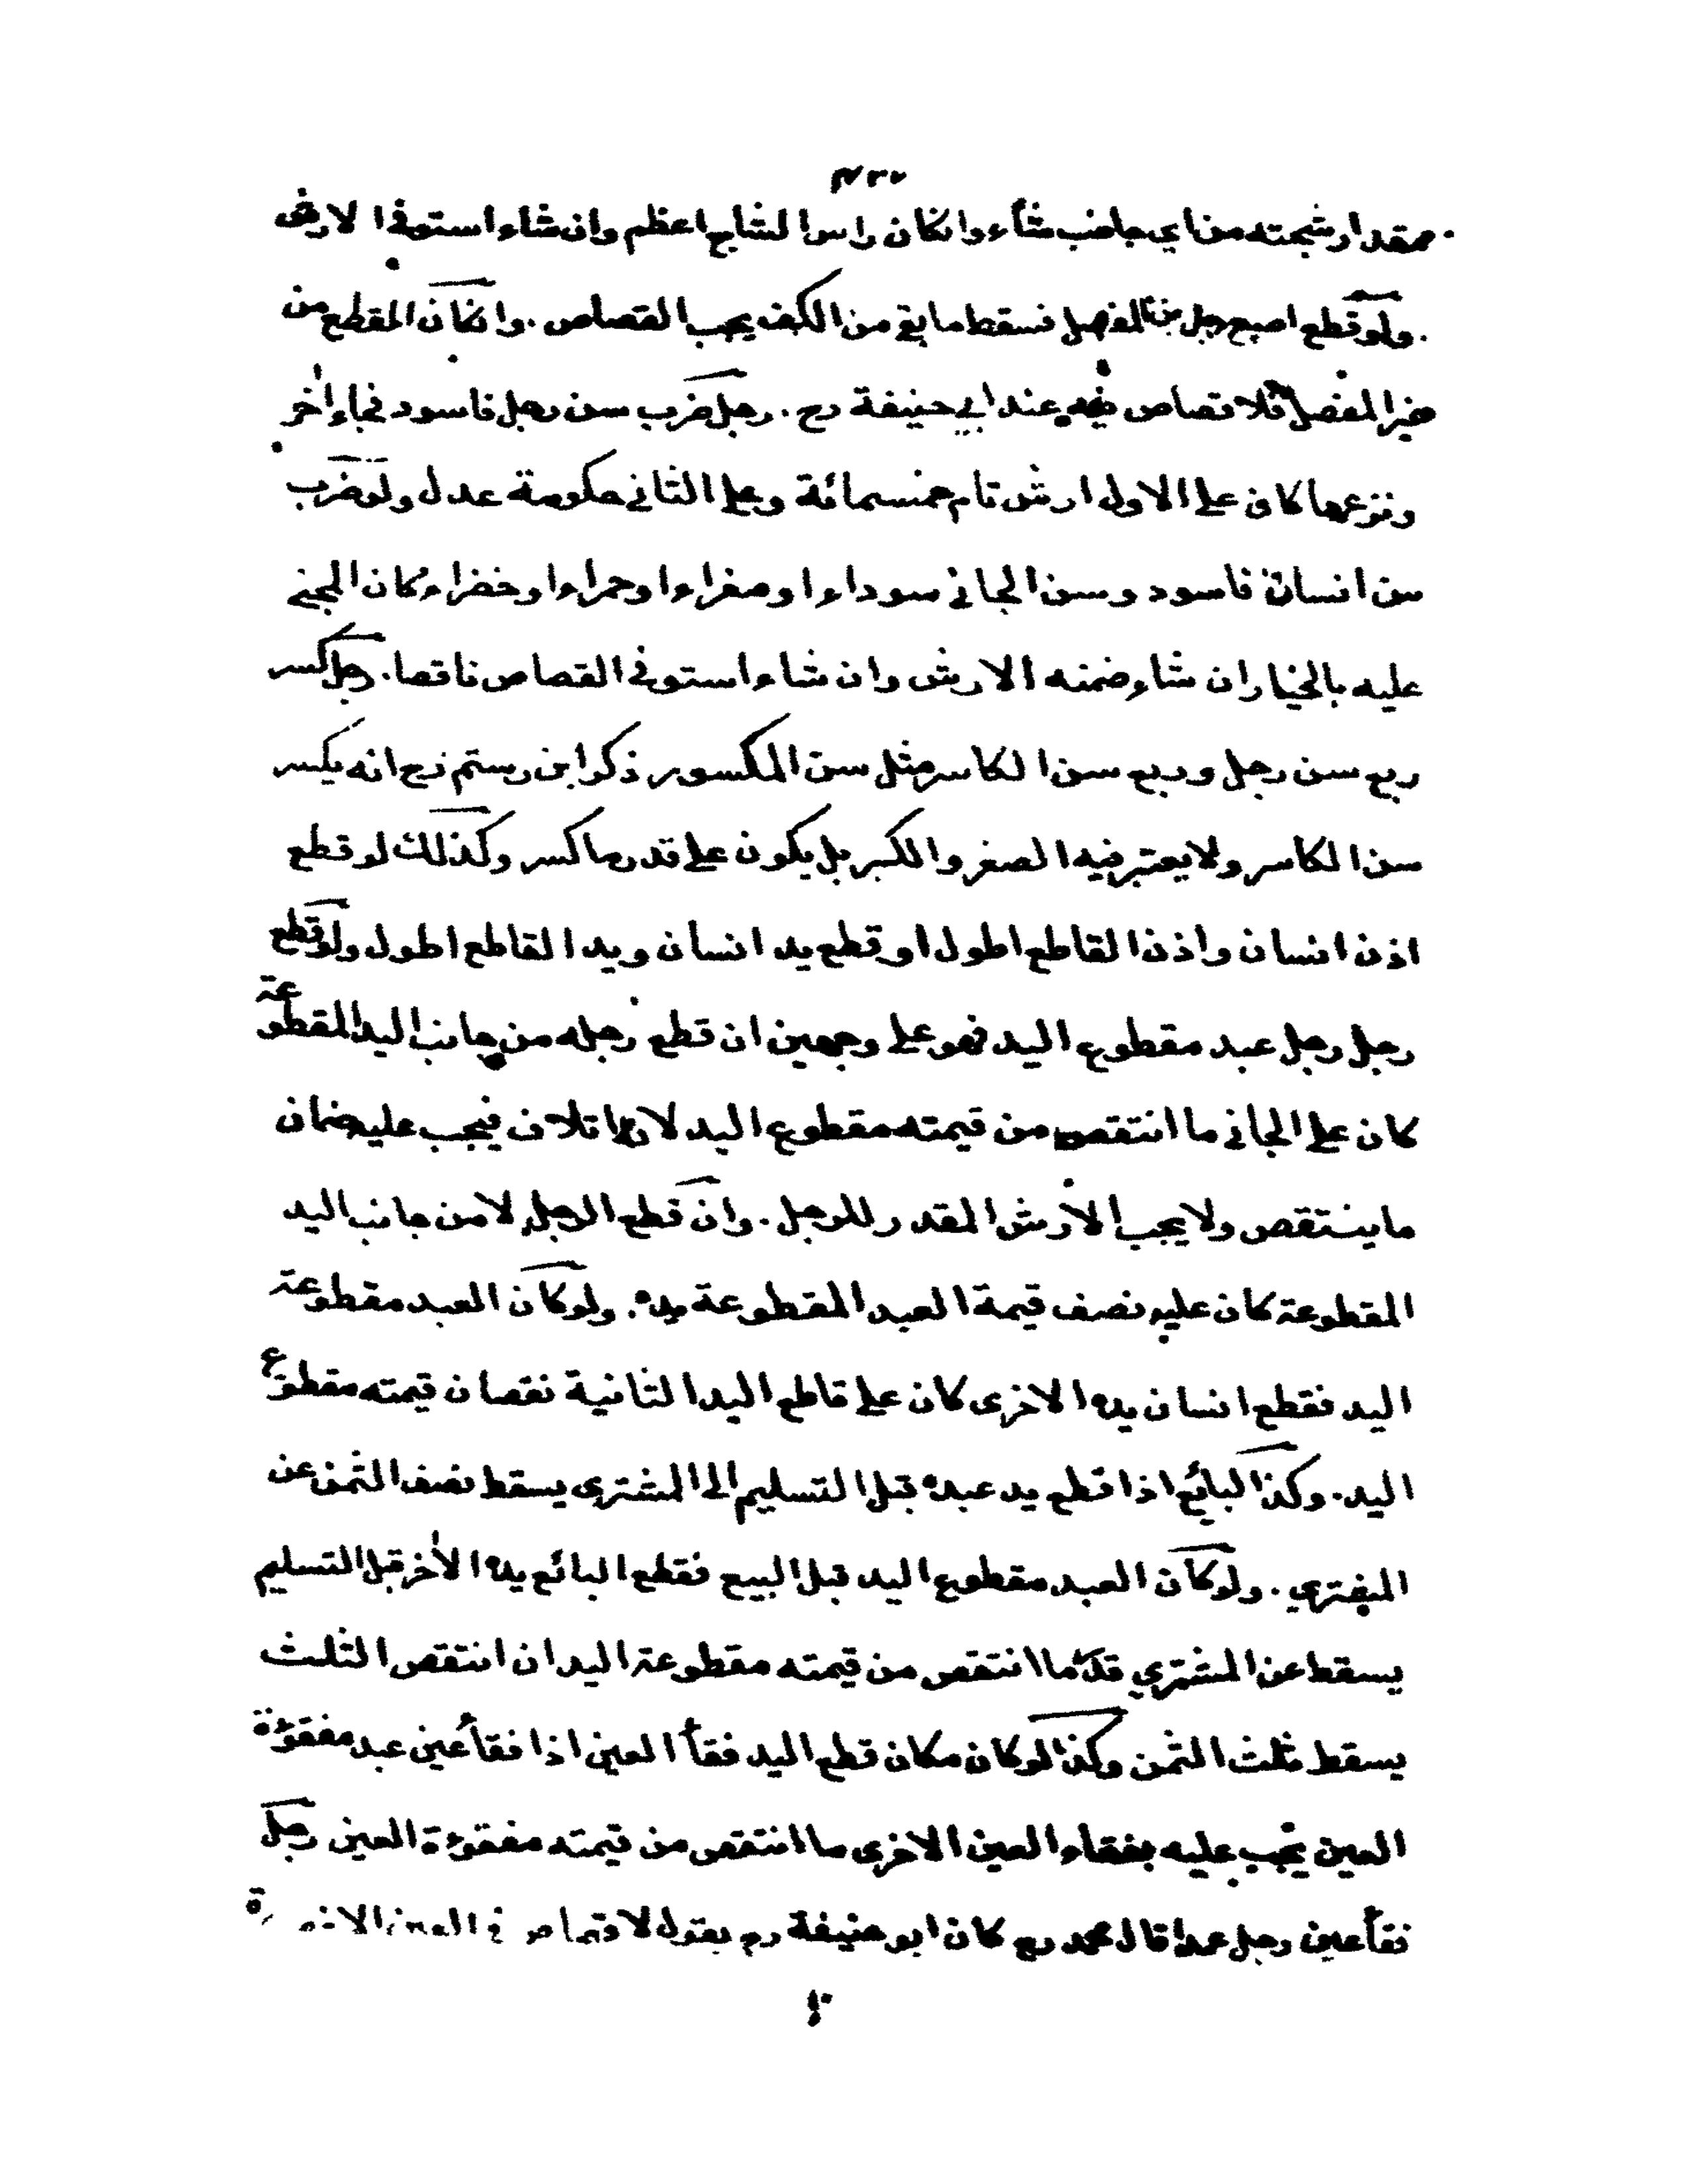 بمقدار شجته من اي جانب شاء وانكان راس الشاج اعظم وان شاء استوفى الارش
ولو قطع اصبع رجل من المفصل فسقط ما بقي من الكف يجب القصاص . وانكان القطع من
غير المفصل فلا قصاص فيه عند ابي حنيفة رح . رجل ضرب سن رجل فاسود فجاء اخر
ونزعها كان على الاول ارش تام خمسمائة وعلى الثاني حكومة عدل ولو ضرب
سن انسان فاسود وسن الجاني سوداء او صفراء او حمراء او خضراء كان المجني
عليه بالخيار ان شاء ضمنه الارش وان شاء استوفى القصاص ناقصا . رجل كسر
ربع سن رجل وربع سن الكاسر مثل سن المكسور ذكر ابن رستم رح انه يكسر
سن الكاسر ولا يعتبر فيه الصغر والكبر بل يكون على قدر ما كسر وكذلك لو قطع
اذن انسان واذن القاطع اطول او قطع يد انسان ويد القاطع اطول ولو قطع
رجل رجل عبد مقطوع اليد فهو على وجهين ان قطع رجله من جانب اليد المقطوعة
كان على الجاني ما انتقص من قيمته مقطوع اليد لانه اتلاف فيجب عليه ضمان
ما ينتقص ولا يجب الارش المقدر للرجل . وان قطع الرجل لا من جانب اليد
المقطوعة كان عليه نصف قيمة العبد المقطوعة يده . ولو كان العبد مقطوعة
اليد فقطع انسان يده الاخرى كان على قاطع اليد الثانية نقصان قيمته مقطوع
اليد . وكذا البائع اذا قطع يد عبده قبل التسليم الى المشتري يسقط نصف الثمن عن
المشتري . ولو كان العبد مقطوع اليد قبل البيع فقطع البائع يده الأخر قبل التسليم
يسقط عن المشتري قدر ما انتقص من قيمته مقطوعة اليد ان انتقص الثلث
يسقط ثلث الثمن وكذا لو كان مكان قطع اليد فقأ العين اذا فقأ عين عبد مفقوءة
العين يجب عليه بفقاء العين الاخرى ما انتقص من قيمته مفقوءة العين رجل
فقأ عين رجل عمدا قال محمد رح كان ابو حنيفة رح يقول لا قصاص في العين